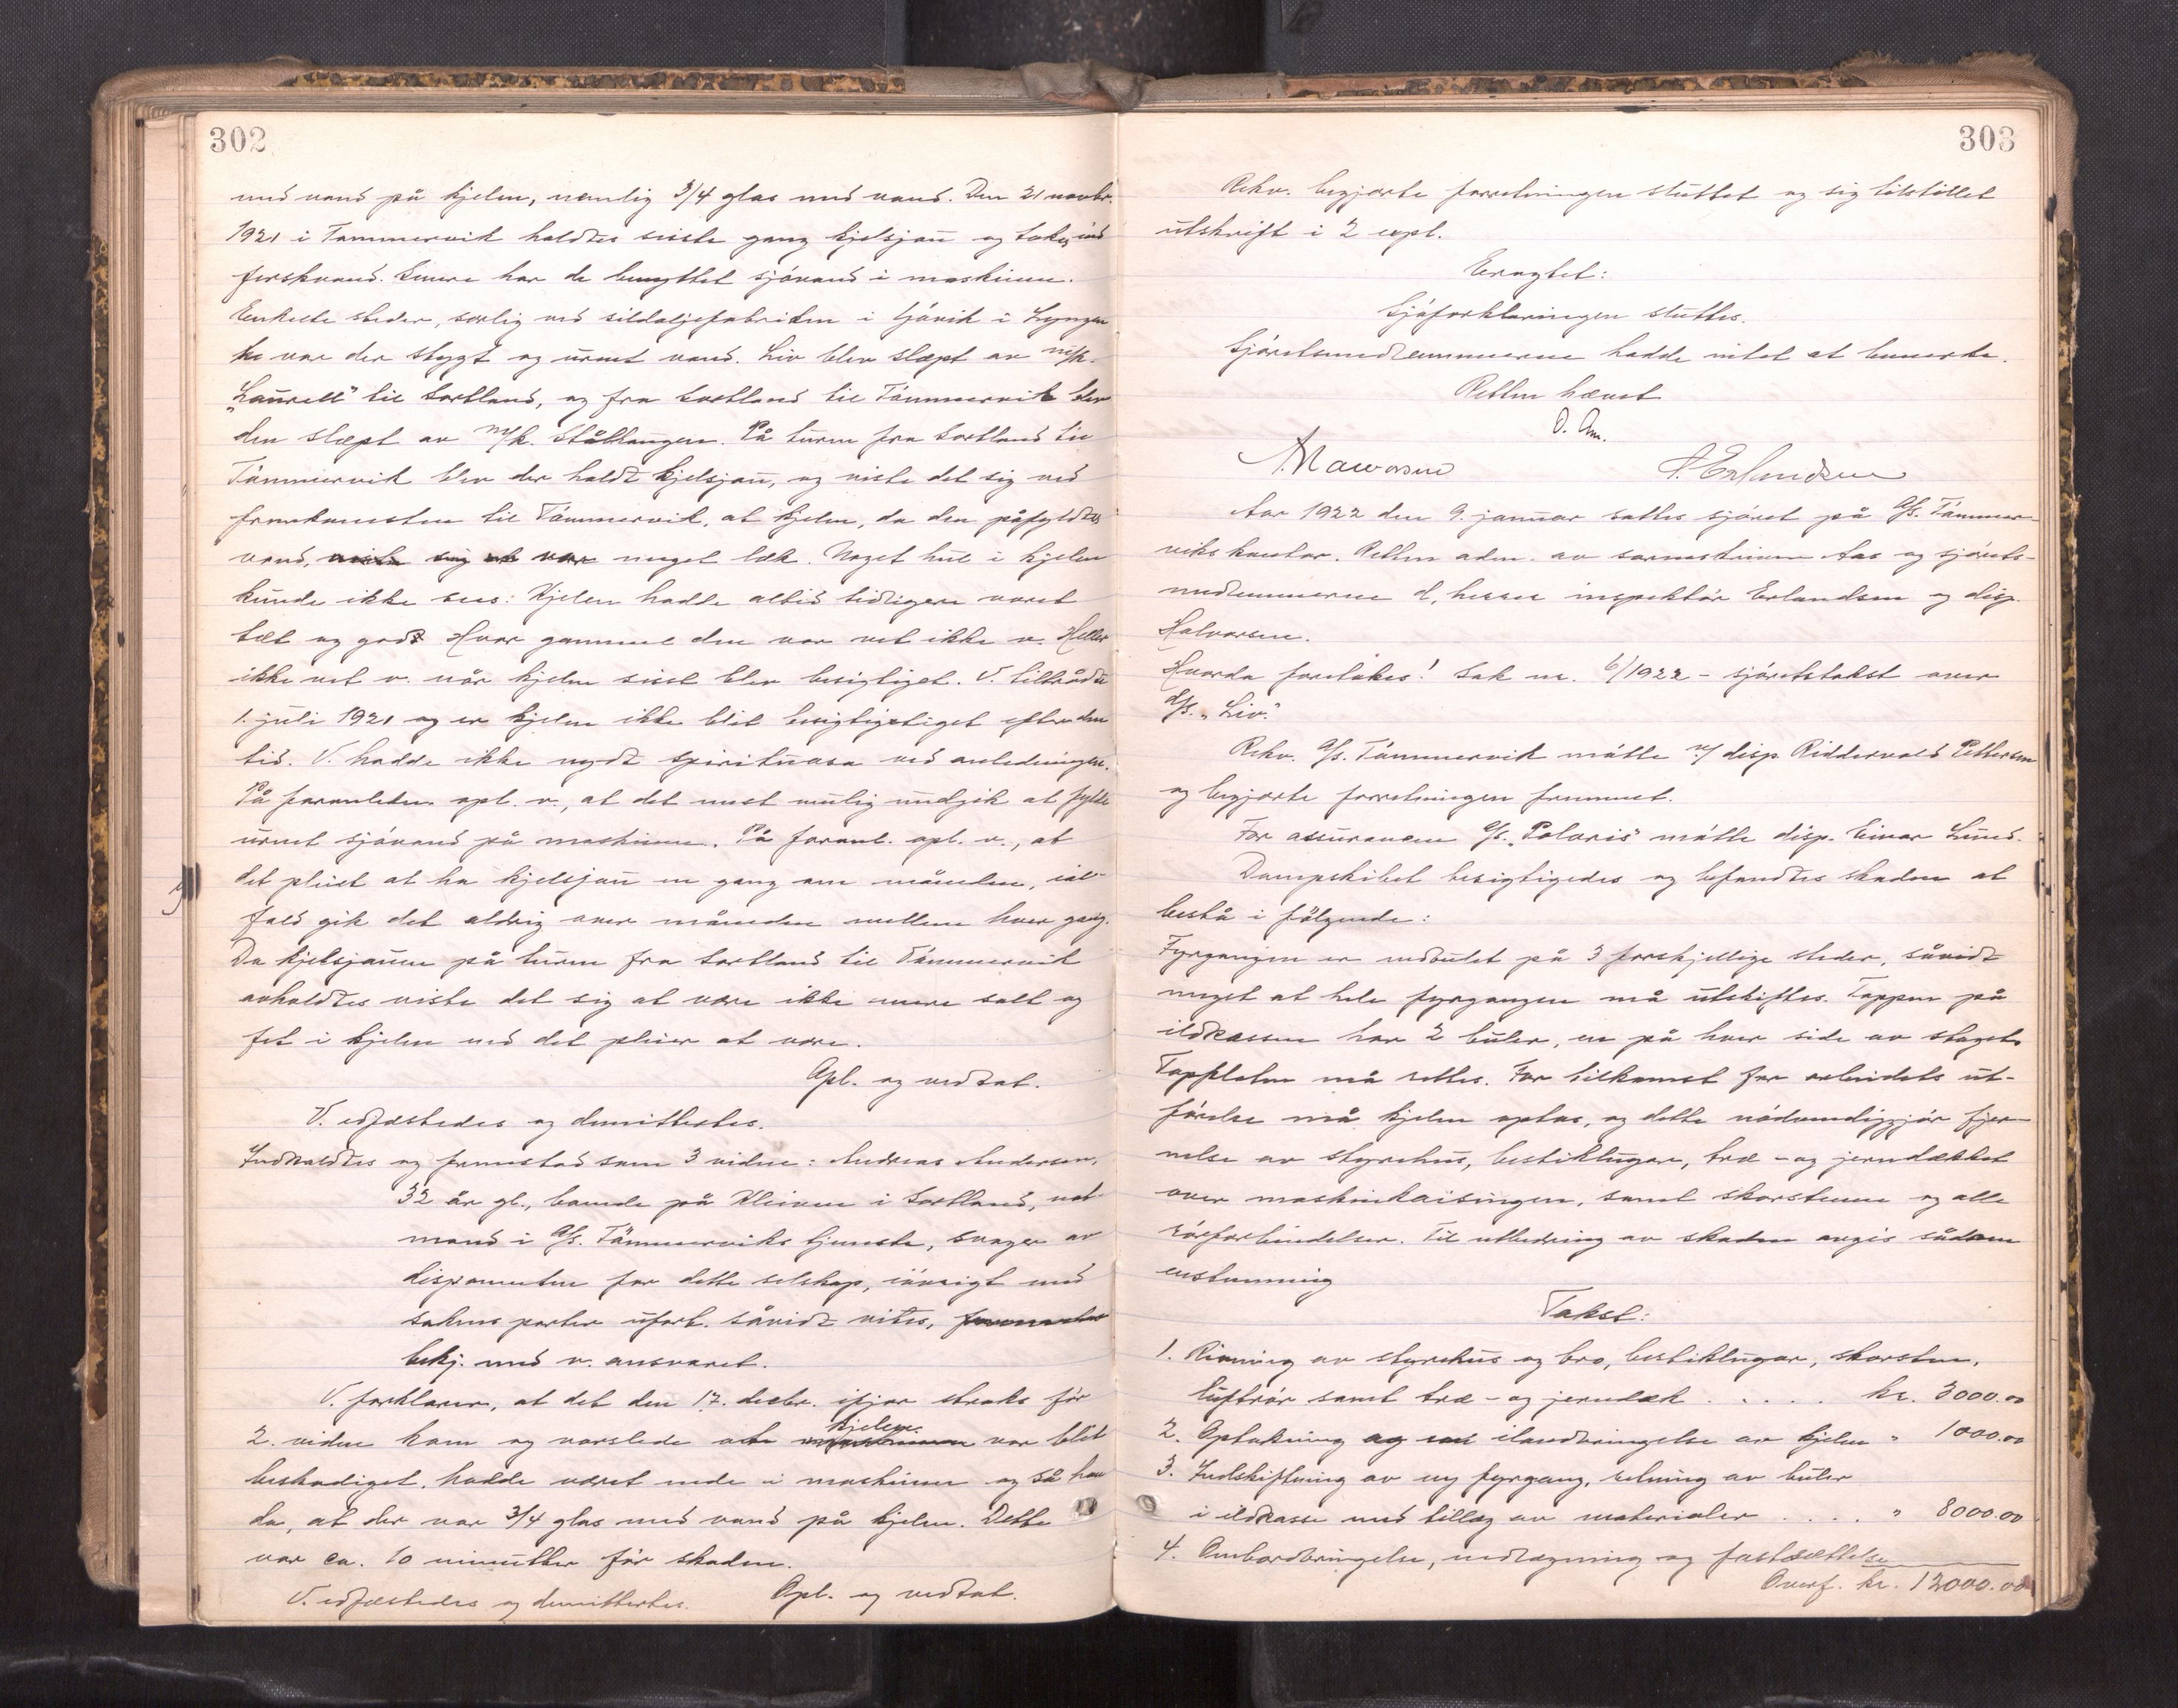 302
med vand på kjelen, nemlig 3/4 glas med vand. Den 21 novbr.
1921 i Tømmervik holdtes siste gang kjelsjau og tokes ind
ferskvand. Senere har de benyttet sjøvand i maskinen.
Enkelte steder, særlig ved sildoljefabriken i Gjøvik i Lyngen
har var der stygt og urent vand. Liv blev slæpt av m/k.
"Laurell" til Sortland, og fra Sortland til Tømmervik blev
den slæpt av m/k. Stålhaugen. På turen fra Sortland til
Tømmervik blev der holdt kjelsjau, og viste det sig ved
fremkomsten til Tømmervik, at kjelen, da den påfyldtes
vand, viste sig at var meget læk. Noget hul i kjelen
kunde ikke sees. Kjelen hadde altid tidligere været
tæt og god. Hvor gammel den var vet ikke v. Heller
ikke vet v. når kjelen sisst blev besigtiget. V. tiltrådte
1. juli 1921 og er kjelen ikke blit besigtigstiget efter den
tid. V. hadde ikke nydt spirituosa ved anledningen.
På foranledn. opl. v., at det mest mulig undgik at fylde
urent sjøvand på maskinen. På foranl. opl. v., at
det pleiet at ha kjelsjau en gang om måneden, ial-
fald gik det aldrig over måneden mellem hver gang.
Da kjelsjauen på turen fra Sortland til Tømmervik
avholdtes viste det sig at være ikke mere salt og
fet i kjelen end det pleier at være.
Opl. og vedtat.
V. edfæstedes og demittertes.
Indkaldtes og fremstod som 3 vidne: Andreas Andersen,
32 år gl., boende på Kleiven i Sortland, not-
mand i A/S. Tømmerviks tjeneste, svoger av
disponenten for dette selskap, iøvrigt med
sakens parter ufort. såvidt vites,
bekj. med v. ansvaret.
V. forklarer, at det den 17. decbr. ifjor straks før
2. vidne kom og varslede at kjelen var blit
beskadiget, hadde været nede i maskinen og så han
da, at der var 3/4 glas med vand på kjelen. Dette
var ca. 10 minutter før skaden.
V. edfæstedes og demittertes. Opl. og vedtat.
303
Rekv. begjærte forretningen sluttet og sig tilstillet
utskrift i 2 expl.
Eragtet:
Sjøforklaringen sluttes.
Sjøretsmedlemmerne hadde intet at bemerke.
Retten hævet
O. Aas.
A. Halvorsen A. Erlandsen
Aar 1922 den 9. januar sattes sjøret på A/S. Tømmer-
viks kontor. Retten adm. av sorenskriver Aas og sjørets-
medlemmerne d, herrer inspektør Erlandsen og disp.
Halvorsen.
Hvorda foretokes: Sak nr. 6/1922 - sjøretstakst over
D/S. "Liv."
Rekv. A/S. Tømmervik møtte v/ disp. Riddervold Pettersen
og begjærte forretningen fremmet.
For assurancen G/S. "Polaris" møtte disp. Einar Lund.
Dampskibet besigtigedes og befandtes skaden at
bestå i følgende:
Fyrgangen er nedbulet på 3 forskjellige steder, såvidt
meget at hele fyrgangen må utskiftes. Toppen på
ildkassen har 2 buler, en på hver side av stagets
Topplaten må rettes. For tilkomst for arbeidets ut-
førelse må kjelen optas, og dette nødvendiggjør fjer-
nelse av styrehus, bestiklugar, træ - og jerndækket
over maskinkaisingen, samt skorstenen og alle
rørforbindelser. Til utbedring av skaden avgis sådan
enstemmig
Takst:
1. Rivning av styrehus og bro, bestiklugar, skorsten,
luftrør samt træ - og jerndæk . . . . . kr. 3000.00
2. Optakning og ilandbringelse av kjelen " 1000.00
3. Indskiftning av ny fyrgang, retning av buler
i ildkasse med tillæg av materialer . . . . " 8000.00
4. Ombordbringelse, nedlægning og fastsættelse
Overf. kr. 12000.00